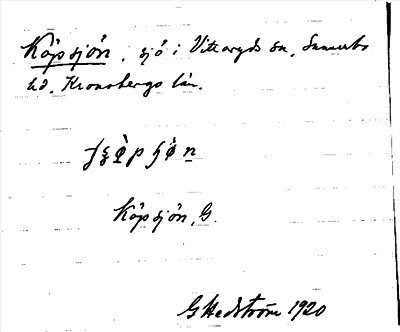 Köpsjön, sjö i Vittaryds sn, Sunnerbo
hd. Kronobergs län.
Köpsjön, G.
G Hedström 1920